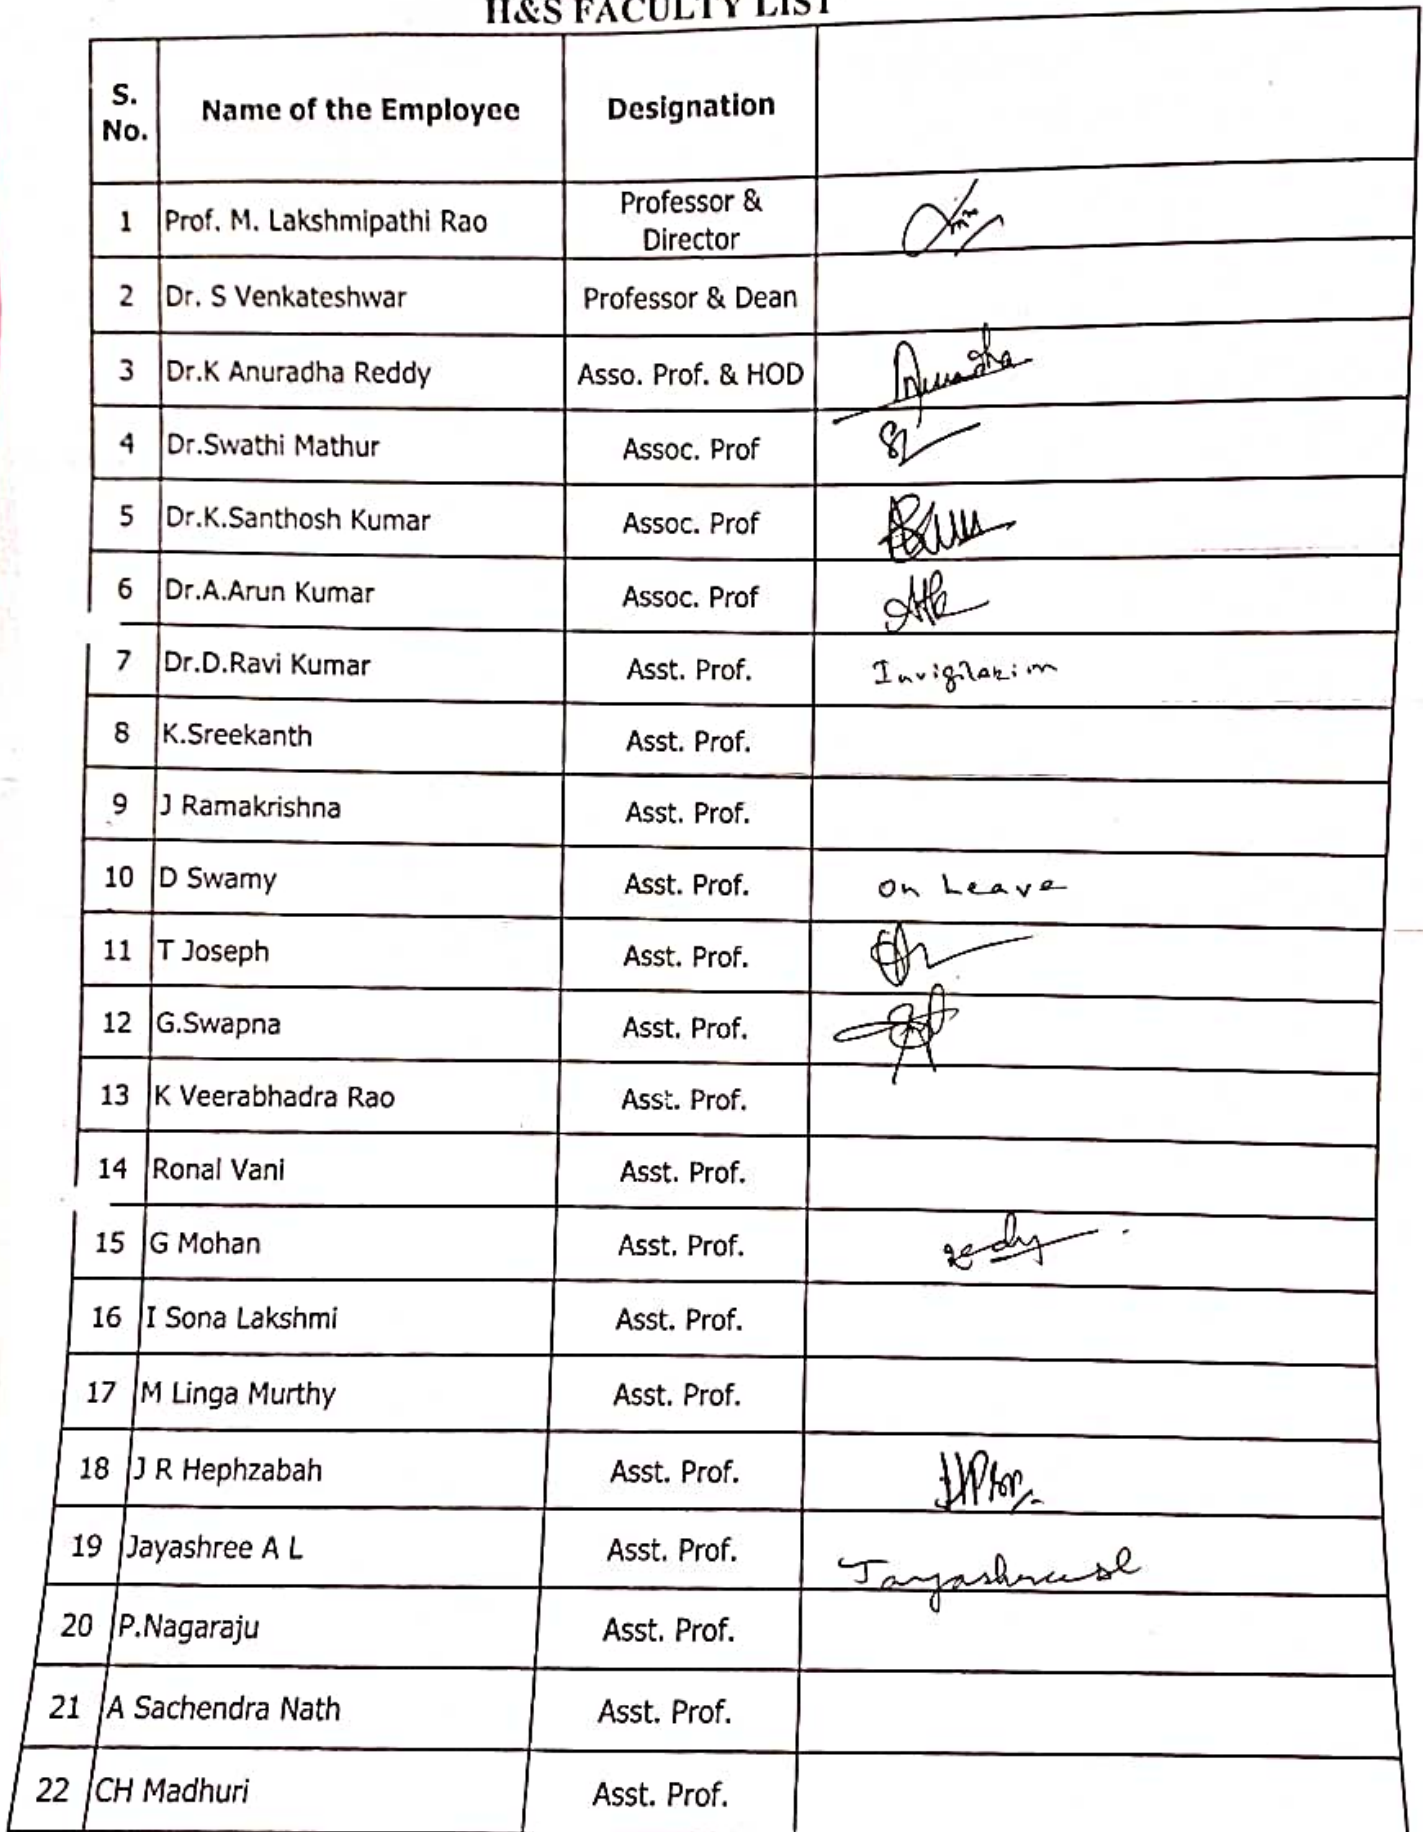 H&S FACULTY LIST
S. No. Name of the Employee Designation
1 Prof. M. Lakshmipathi Rao Professor & Director
2 Dr. S Venkateshwar Professor & Dean
3 Dr.K Anuradha Reddy Asso. Prof. & HOD Anuradha
4 Dr.Swathi Mathur Assoc. Prof
5 Dr.K.Santhosh Kumar Assoc. Prof
6 Dr.A.Arun Kumar Assoc. Prof
7 Dr.D.Ravi Kumar Asst. Prof. Invigilation
8 K.Sreekanth Asst. Prof.
9 J Ramakrishna Asst. Prof.
10 D Swamy Asst. Prof. On Leave
11 T Joseph Asst. Prof.
12 G.Swapna Asst. Prof.
13 K Veerabhadra Rao Asst. Prof.
14 Ronal Vani Asst. Prof.
15 G Mohan Asst. Prof.
16 I Sona Lakshmi Asst. Prof.
17 M Linga Murthy Asst. Prof.
18 J R Hephzabah Asst. Prof.
19 Jayashree A L Asst. Prof.
20 P.Nagaraju Asst. Prof.
21 A Sachendra Nath Asst. Prof.
22 CH Madhuri Asst. Prof.